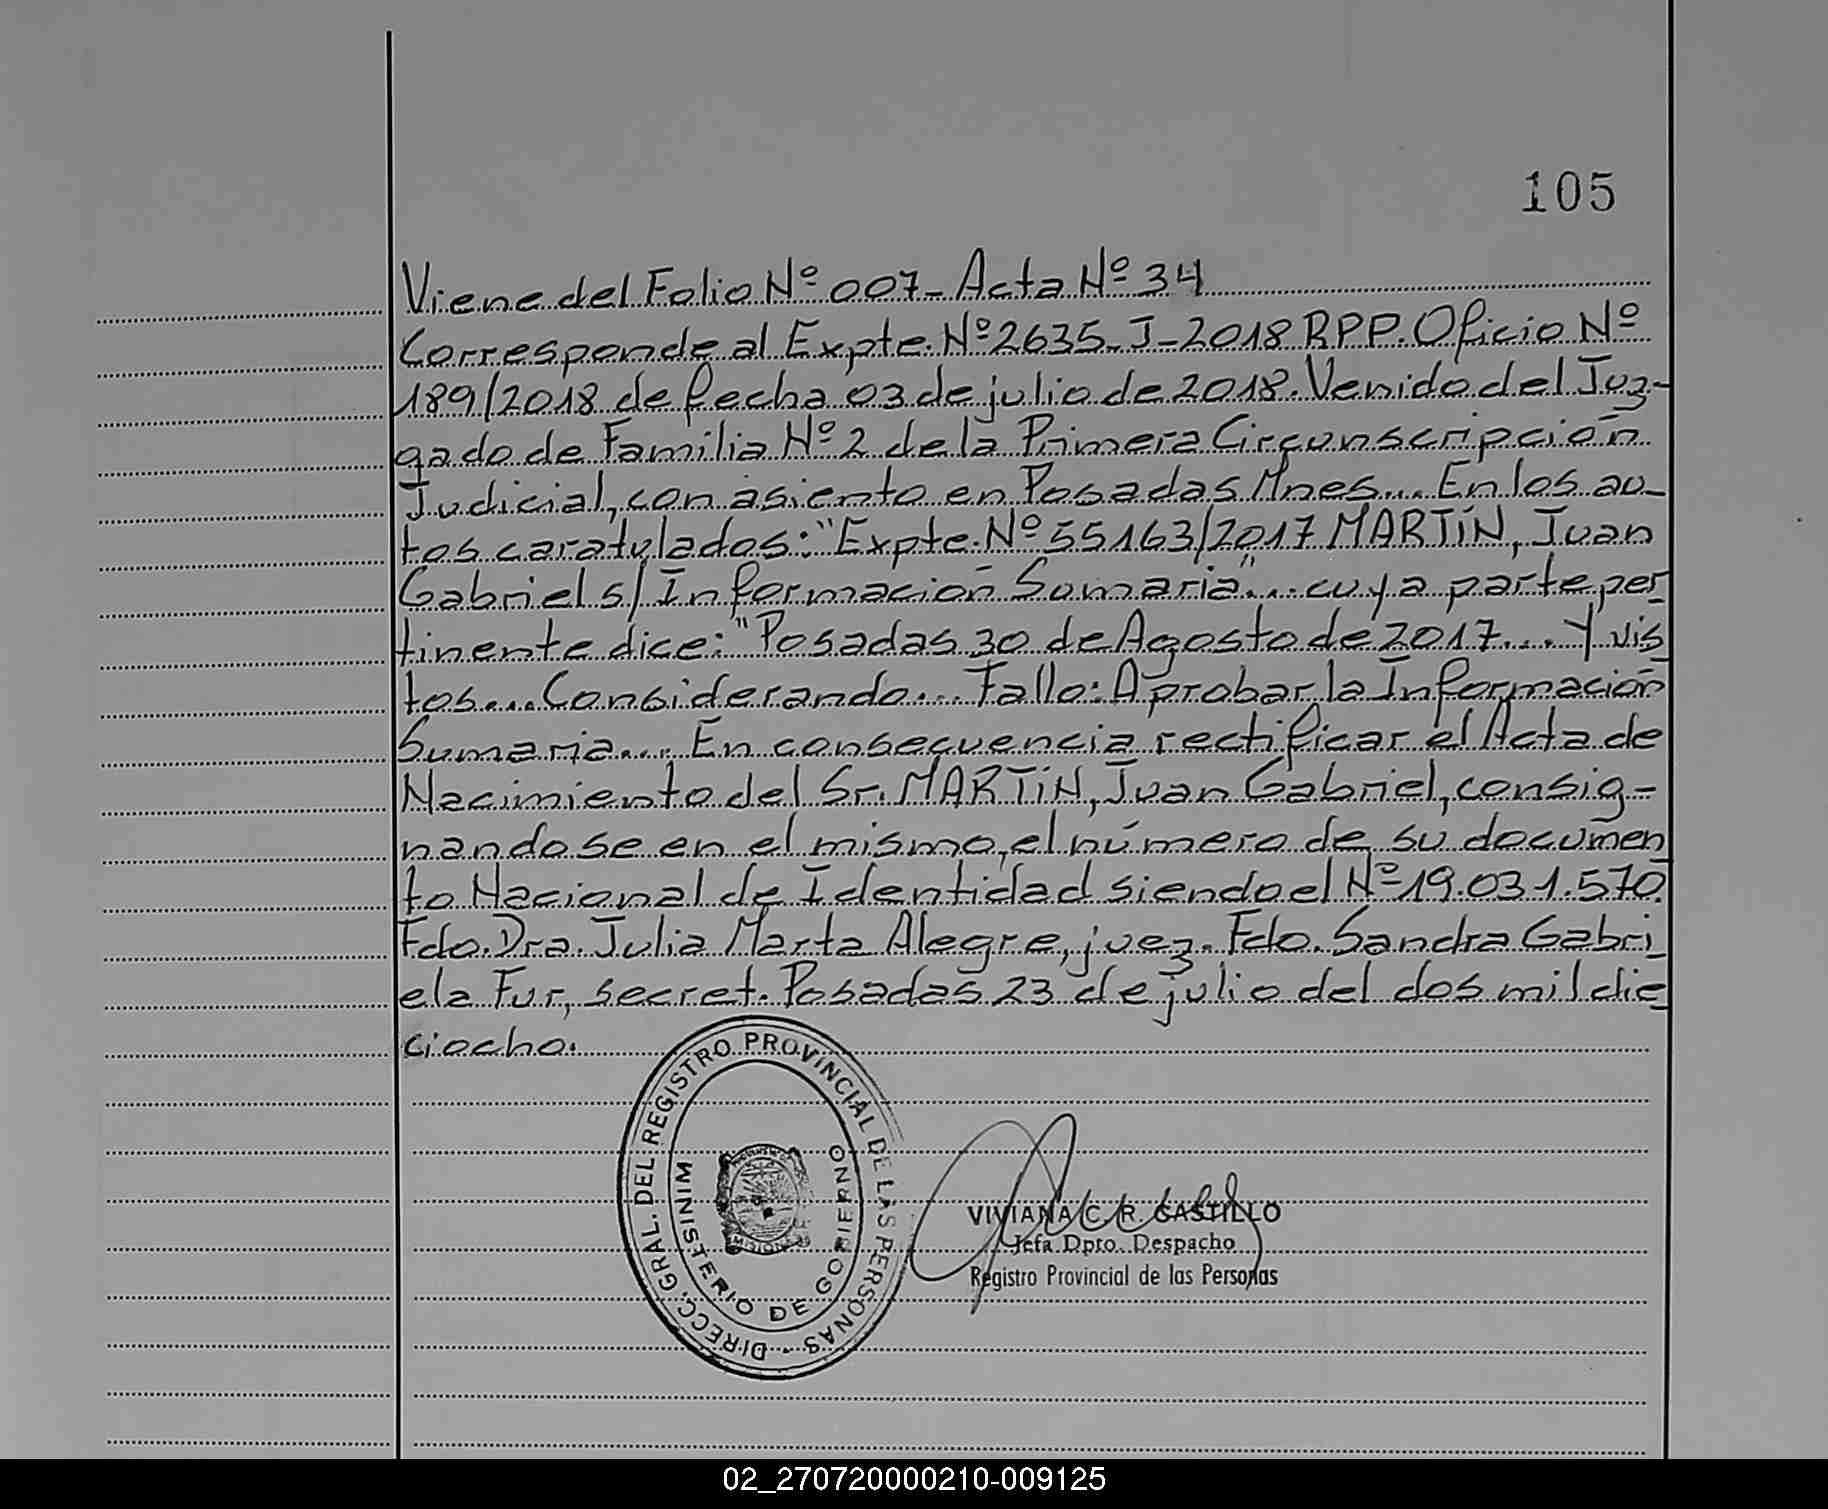 105
Viene del Folio Nº 007_ Acta Nº 34
Corresponde al Expte. Nº 2635_J_2018 RPP. Oficio Nº
189/2018 de fecha 03 de julio de 2018. Venido del Juz-
gado de Familia Nº 2 de la Primera Circunscripción
Judicial, con asiento en Posadas Mnes... En los au_
tos caratulados: "Expte. Nº 55163/2017 MARTÍN, Juan
Gabriel s/ Información Sumaria"... cuya parte per_
tinente dice: "Posadas 30 de Agosto de 2017.... Y vis_
tos.... Considerando.... Fallo: Aprobar la Información
Sumaria.... En consecuencia rectificar el Acta de
Nacimiento del Sr. MARTÍN, Juan Gabriel, consig-
nandose en el mismo, el número de su documen_
to Nacional de Identidad siendo el Nº 19.031.570.
Fdo. Dra. Julia Marta Alegre, juez. Fdo. Sandra Gabri_
ela Fur, secret. Posadas 23 de julio del dos mil die_
ciocho.
DIRECC. GRAL. DEL REGISTRO PROVINCIAL DE LAS PERSONAS -
MINISTERIO DE GOBIERNO
MISIONES
VIVIANA C. R. CASTILLO
Jefa Dpto. Despacho
Registro Provincial de las Personas
02_270720000210-009125